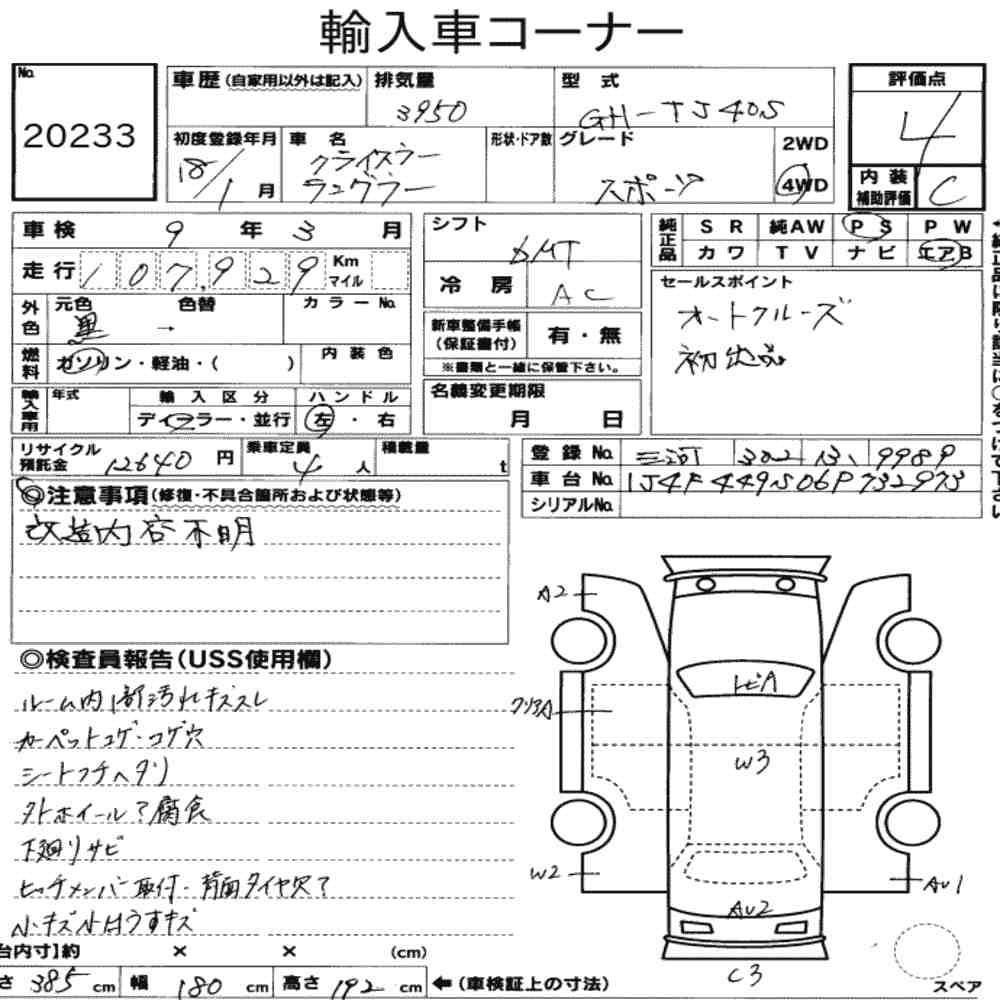 輸入車コーナー
No.
20233
車歴(自家用以外は記入)
排気量
3950
型 式
GH-TJ40S
評価点
4
初度登録年月
18/1月
車 名
クライスラー
ラングラー
形状・ドア数
グレード
スポーツ
2WD
4WD
内 装
補助評価
C
車 検 9 年 3 月
走 行 107,929 Km マイル
外色
元色
黒
色替
→
カラーNo.
燃料
ガソリン・軽油・( )
内 装 色
輸入車用
年式
輸 入 区 分
ディーラー・並行
ハ ン ド ル
左 ・ 右
シフト
6MT
冷 房
AC
新車整備手帳
(保証書付)
有・無
※書類と一緒に保管下さい。
名義変更期限
月 日
純正品
S R 純AW P S P W
カ ワ T V ナ ビ エアB
セールスポイント
オートクルーズ
初出品
リサイクル
預託金
12640 円
乗車定員
4 人
積載量
t
登 録 No. 三河 302 ろ 9989
車 台 No. 1J4F449S06P732973
シリアルNo.
◎注意事項(修復・不具合箇所および状態等)
改造内容不明
◎検査員報告(USS使用欄)
ルーム内1部汚れキズスレ
カーペットコゲ・コゲ穴
シートフチヘタリ
外ホイール?腐食
下廻リサビ
ヒッチメンバー取付・背面タイヤ欠?
小キズ小はうすキズ
A2
トビA
クリアA
W3
W2
AU1
AU2
C3
スペア
台内寸】約 × × (cm)
さ 385 cm 幅 180 cm 高さ 192 cm ←(車検証上の寸法)